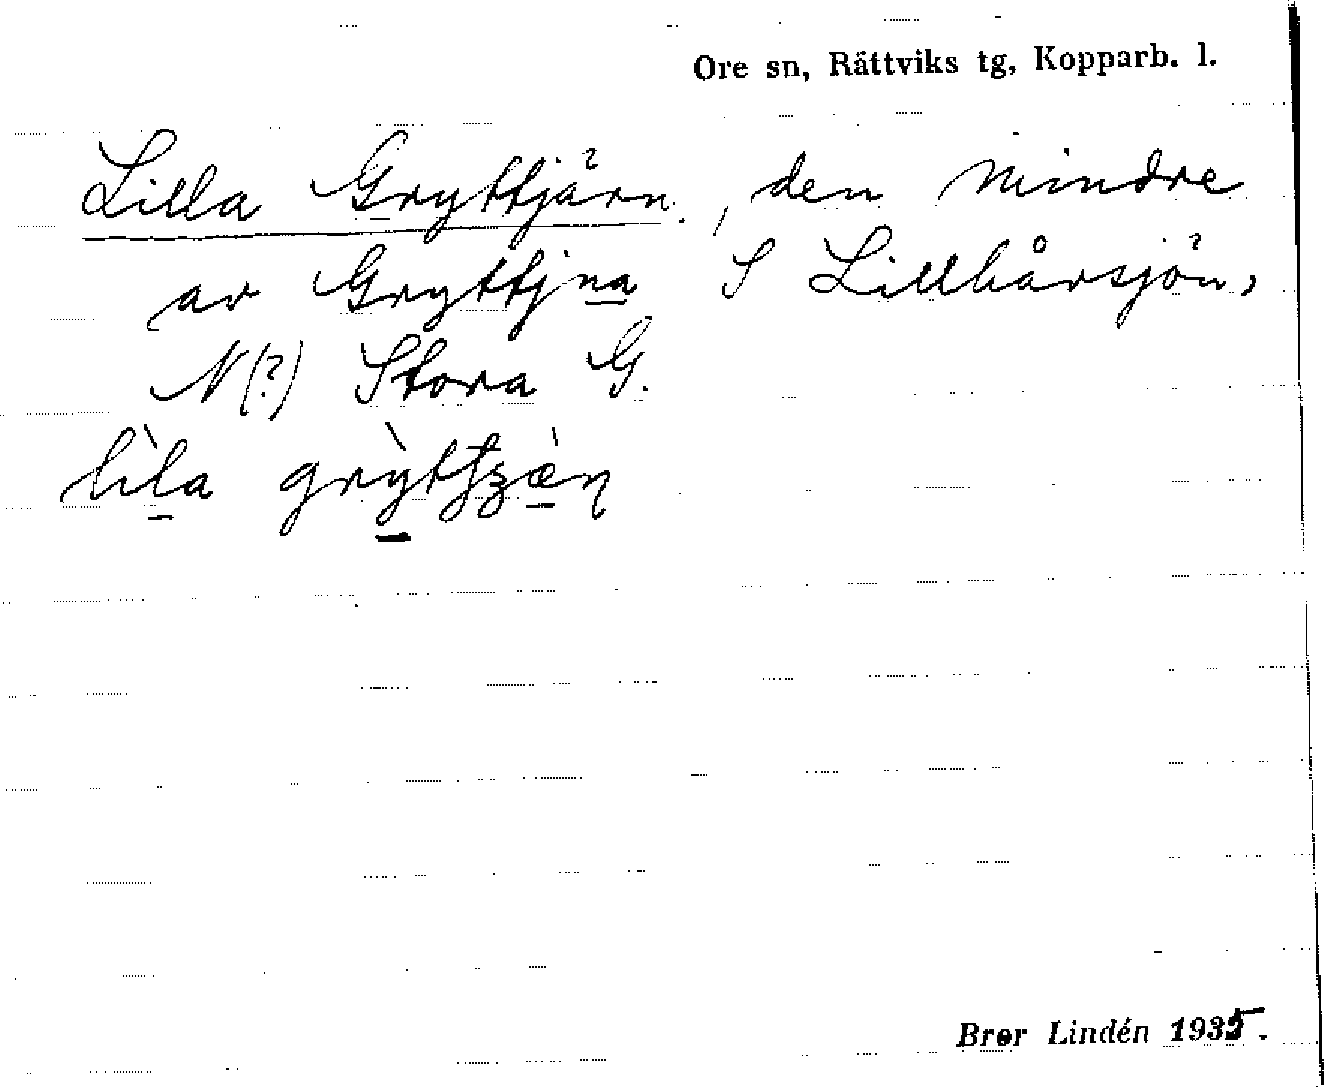 Ore sn, Rättviks tg, Kopparb. l.
Lilla Gryttjärn, den mindre
av Gryttjna S Lillhårsjön,
N(?) Stora G.
lìla
Bror Lindén 1935.